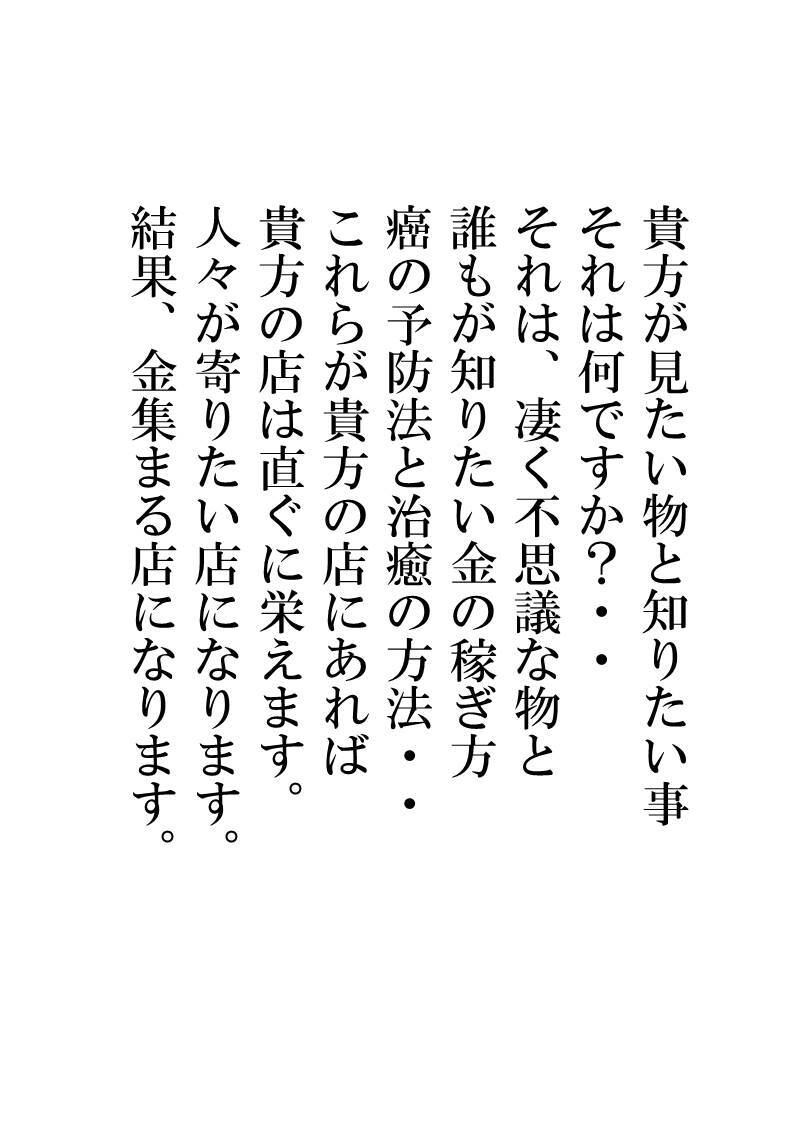 貴方が見たい物と知りたい事
それは何ですか？・・
それは、凄く不思議な物と
誰もが知りたい金の稼ぎ方
癌の予防法と治癒の方法・・
これらが貴方の店にあれば
貴方の店は直ぐに栄えます。
人々が寄りたい店になります。
結果、金集まる店になります。